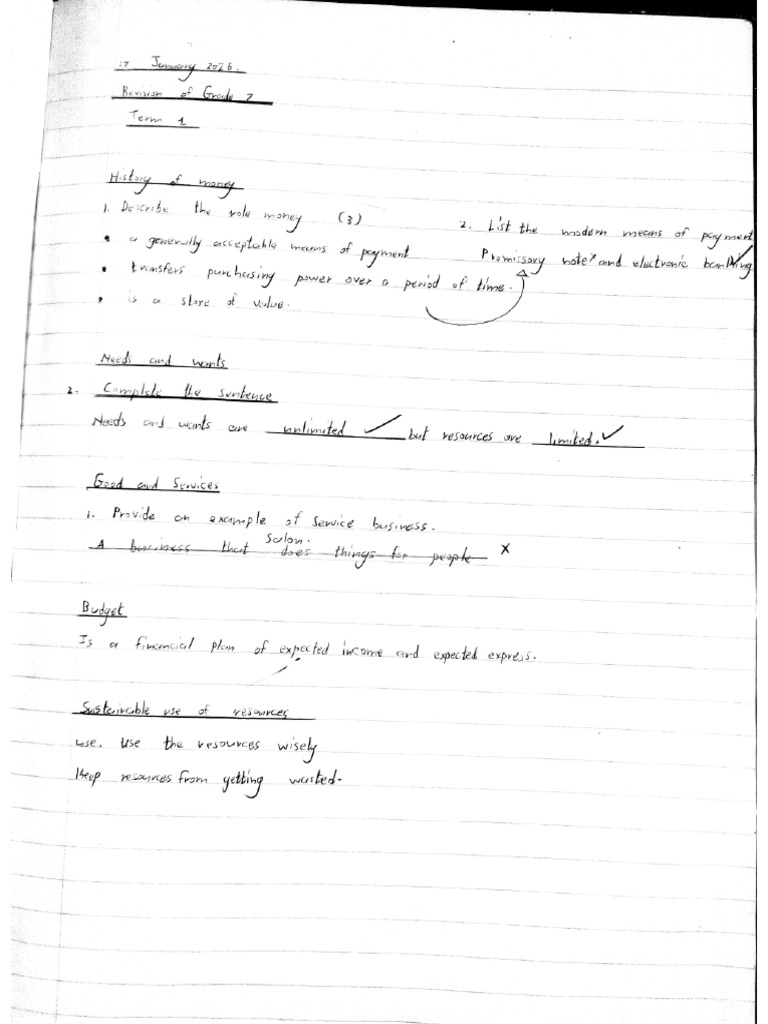 17 January 2026.
Revision of Grade 7
Term 1
History of money
1. Describe the role money (3)
• a generally acceptable means of payment
• transfers purchasing power over a period of time.
• is a store of value.
2. List the modern means of payment
Promissory note x and electronic banking ✓
Needs and wants
2. Complete the sentence
Needs and wants are unlimited ✓ but resources are limited. ✓
Good and Services
1. Provide an example of service business.
Salon.
A business that does things for people x
Budget
Is a financial plan of expected income and expected express.
Sustainable use of resources
use. Use the resources wisely
Keep resources from getting wasted.